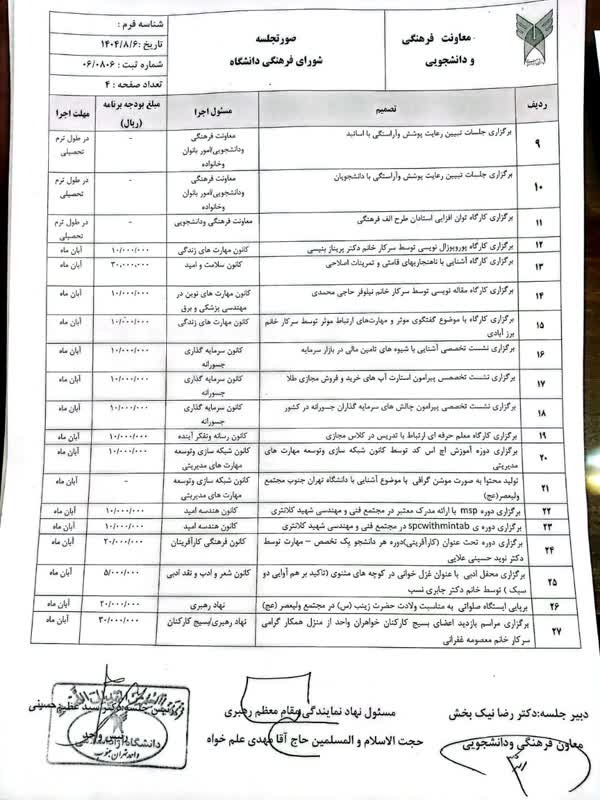 معاونت فرهنگی
و دانشجویی
صورتجلسه
شورای فرهنگی دانشگاه
شناسه فرم :
تاریخ :۱۴۰۴/۸/۶
شماره ثبت : ۰۶/۰۸۰۶
تعداد صفحه : ۴
ردیف تصمیم مسئول اجرا مبلغ بودجه برنامه مهلت اجرا
(ریال)
۹ برگزاری جلسات تبیین رعایت پوشش وآراستگی با اساتید معاونت فرهنگی - در طول ترم
ودانشجویی/امور بانوان تحصیلی
وخانواده
۱۰ برگزاری جلسات تبیین رعایت پوشش وآراستگی با دانشجویان معاونت فرهنگی - در طول ترم
ودانشجویی/امور بانوان تحصیلی
وخانواده
۱۱ برگزاری کارگاه توان افزایی استادان طرح الف فرهنگی معاونت فرهنگی ودانشجویی - در طول ترم
تحصیلی
۱۲ برگزاری کارگاه پوروپوزال نویسی توسط سرکار خانم دکتر پریناز بنیسی کانون مهارت های زندگی ۱۰/۰۰۰/۰۰۰ آبان ماه
۱۳ برگزاری کارگاه آشنایی با ناهنجاریهای قامتی و تمرینات اصلاحی کانون سلامت و امید ۳۰,۰۰۰,۰۰۰ آبان ماه
۱۴ برگزاری کارگاه مقاله نویسی توسط سرکار خانم نیلوفر حاجی محمدی کانون مهارت های نوین در ۱۰/۰۰۰/۰۰۰ آبان ماه
مهندسی پزشکی و برق
۱۵ برگزاری کارگاه با موضوع گفتگوی موثر و مهارت‌های ارتباط موثر توسط سرکار خانم کانون مهارت های زندگی ۱۰/۰۰۰/۰۰۰ آبان ماه
برز آبادی
۱۶ برگزاری نشست تخصصی آشنایی با شیوه های تامین مالی در بازار سرمایه کانون سرمایه گذاری ۱۰/۰۰۰/۰۰۰ آبان ماه
جسورانه
۱۷ برگزاری نشست تخصصی پیرامون استارت آپ های خرید و فروش مجازی طلا کانون سرمایه گذاری ۱۰/۰۰۰/۰۰۰ آبان ماه
جسورانه
۱۸ برگزاری نشست تخصصی پیرامون چالش های سرمایه گذاران جسورانه در کشور کانون سرمایه گذاری ۱۰/۰۰۰/۰۰۰ آبان ماه
جسورانه
۱۹ برگزاری کارگاه معلم حرفه ای ارتباط با تدریس در کلاس مجازی کانون رسانه وتفکر آینده ۱۰/۰۰۰/۰۰۰ آبان ماه
۲۰ برگزاری دوره آموزش اچ اس کد توسط کانون شبکه سازی وتوسعه مهارت های کانون شبکه سازی وتوسعه ۱۰/۰۰۰/۰۰۰ آبان ماه
مدیریتی مهارت های مدیریتی
۲۱ تولید محتوا به صورت موشن گرافی با موضوع آشنایی با دانشگاه تهران جنوب مجتمع کانون شبکه سازی وتوسعه - آبان ماه
ولیعصر(عج) مهارت های مدیریتی
۲۲ برگزاری دوره msp با ارائه مدرک معتبر در مجتمع فنی و مهندسی شهید کلانتری کانون هندسه امید ۱۰/۰۰۰/۰۰۰ آبان ماه
۲۳ برگزاری دوره ی spcwithmintab در مجتمع فنی و مهندسی شهید کلانتری کانون هندسه امید ۱۰/۰۰۰/۰۰۰ آبان ماه
۲۴ برگزاری دوره تحت عنوان (کارآفرینی)دوره هر دانشجو یک تخصص – مهارت توسط کانون فرهنگی کارآفرینان ۲۰/۰۰۰/۰۰۰ آبان ماه
دکتر نوید حسینی علایی
۲۵ برگزاری محفل ادبی با عنوان غزل خوانی در کوچه های مثنوی (تاکید بر هم آوایی دو کانون شعر و ادب و نقد ادبی ۵/۰۰۰/۰۰۰ آبان ماه
سبک ) توسط خانم دکتر جابری نسب
۲۶ برپایی ایستگاه صلواتی به مناسبت ولادت حضرت زینب (س) در مجتمع ولیعصر (عج) نهاد رهبری ۲۰/۰۰۰/۰۰۰ آبان ماه
۲۷ برگزاری مراسم بازدید اعضای بسیج کارکنان خواهران واحد از منزل همکار گرامی نهاد رهبری/بسیج کارکنان ۳۰/۰۰۰/۰۰۰ آبان ماه
سرکار خانم معصومه غفرانی
دبیر جلسه:دکتر رضا نیک بخش
معاون فرهنگی ودانشجویی
مسئول نهاد نمایندگی مقام معظم رهبری
حجت الاسلام و المسلمین حاج آقا مهدی علم خواه
جلسه:دکتر سید عظیم حسینی
رئیس واحد
دانشگاه آزاد اسلامی
واحد تهران جنوب